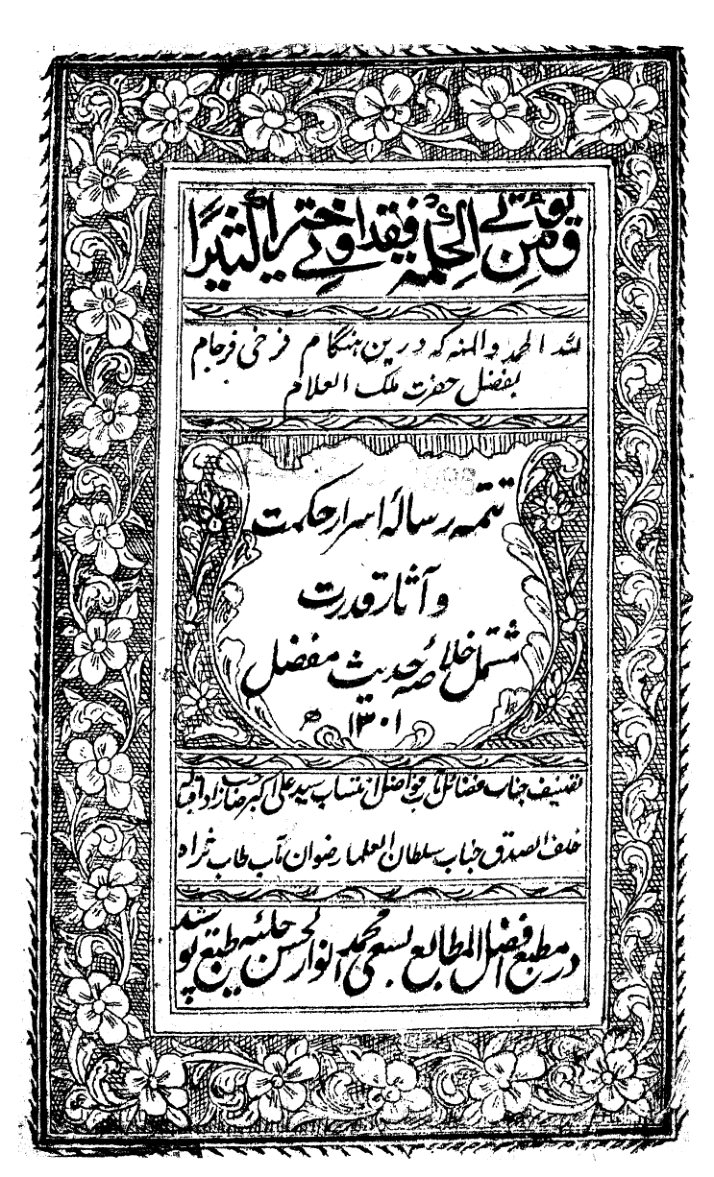 ومن یؤتی الحکمة فقد اوتی خیرا کثیرا
للہ الحمد والمنه که درین ہنگام فرخی فرجام
بفضل حضرت ملک العلام
تتمہ رسالۂ اسرار حکمت
و آثار قدرت
مشتمل خلاصۂ حدیث مفضل
۱۳۰۱ ھ
تصنیف جناب فضائل مآب فواضل انتساب سید علی اکبر صاحب زاد
خلف الصدق جناب سلطان العلما رضوان مآب طاب ثراه
در مطبع افضل المطابع بسعی محمد انوار الحسن حلیه طبع پوشید